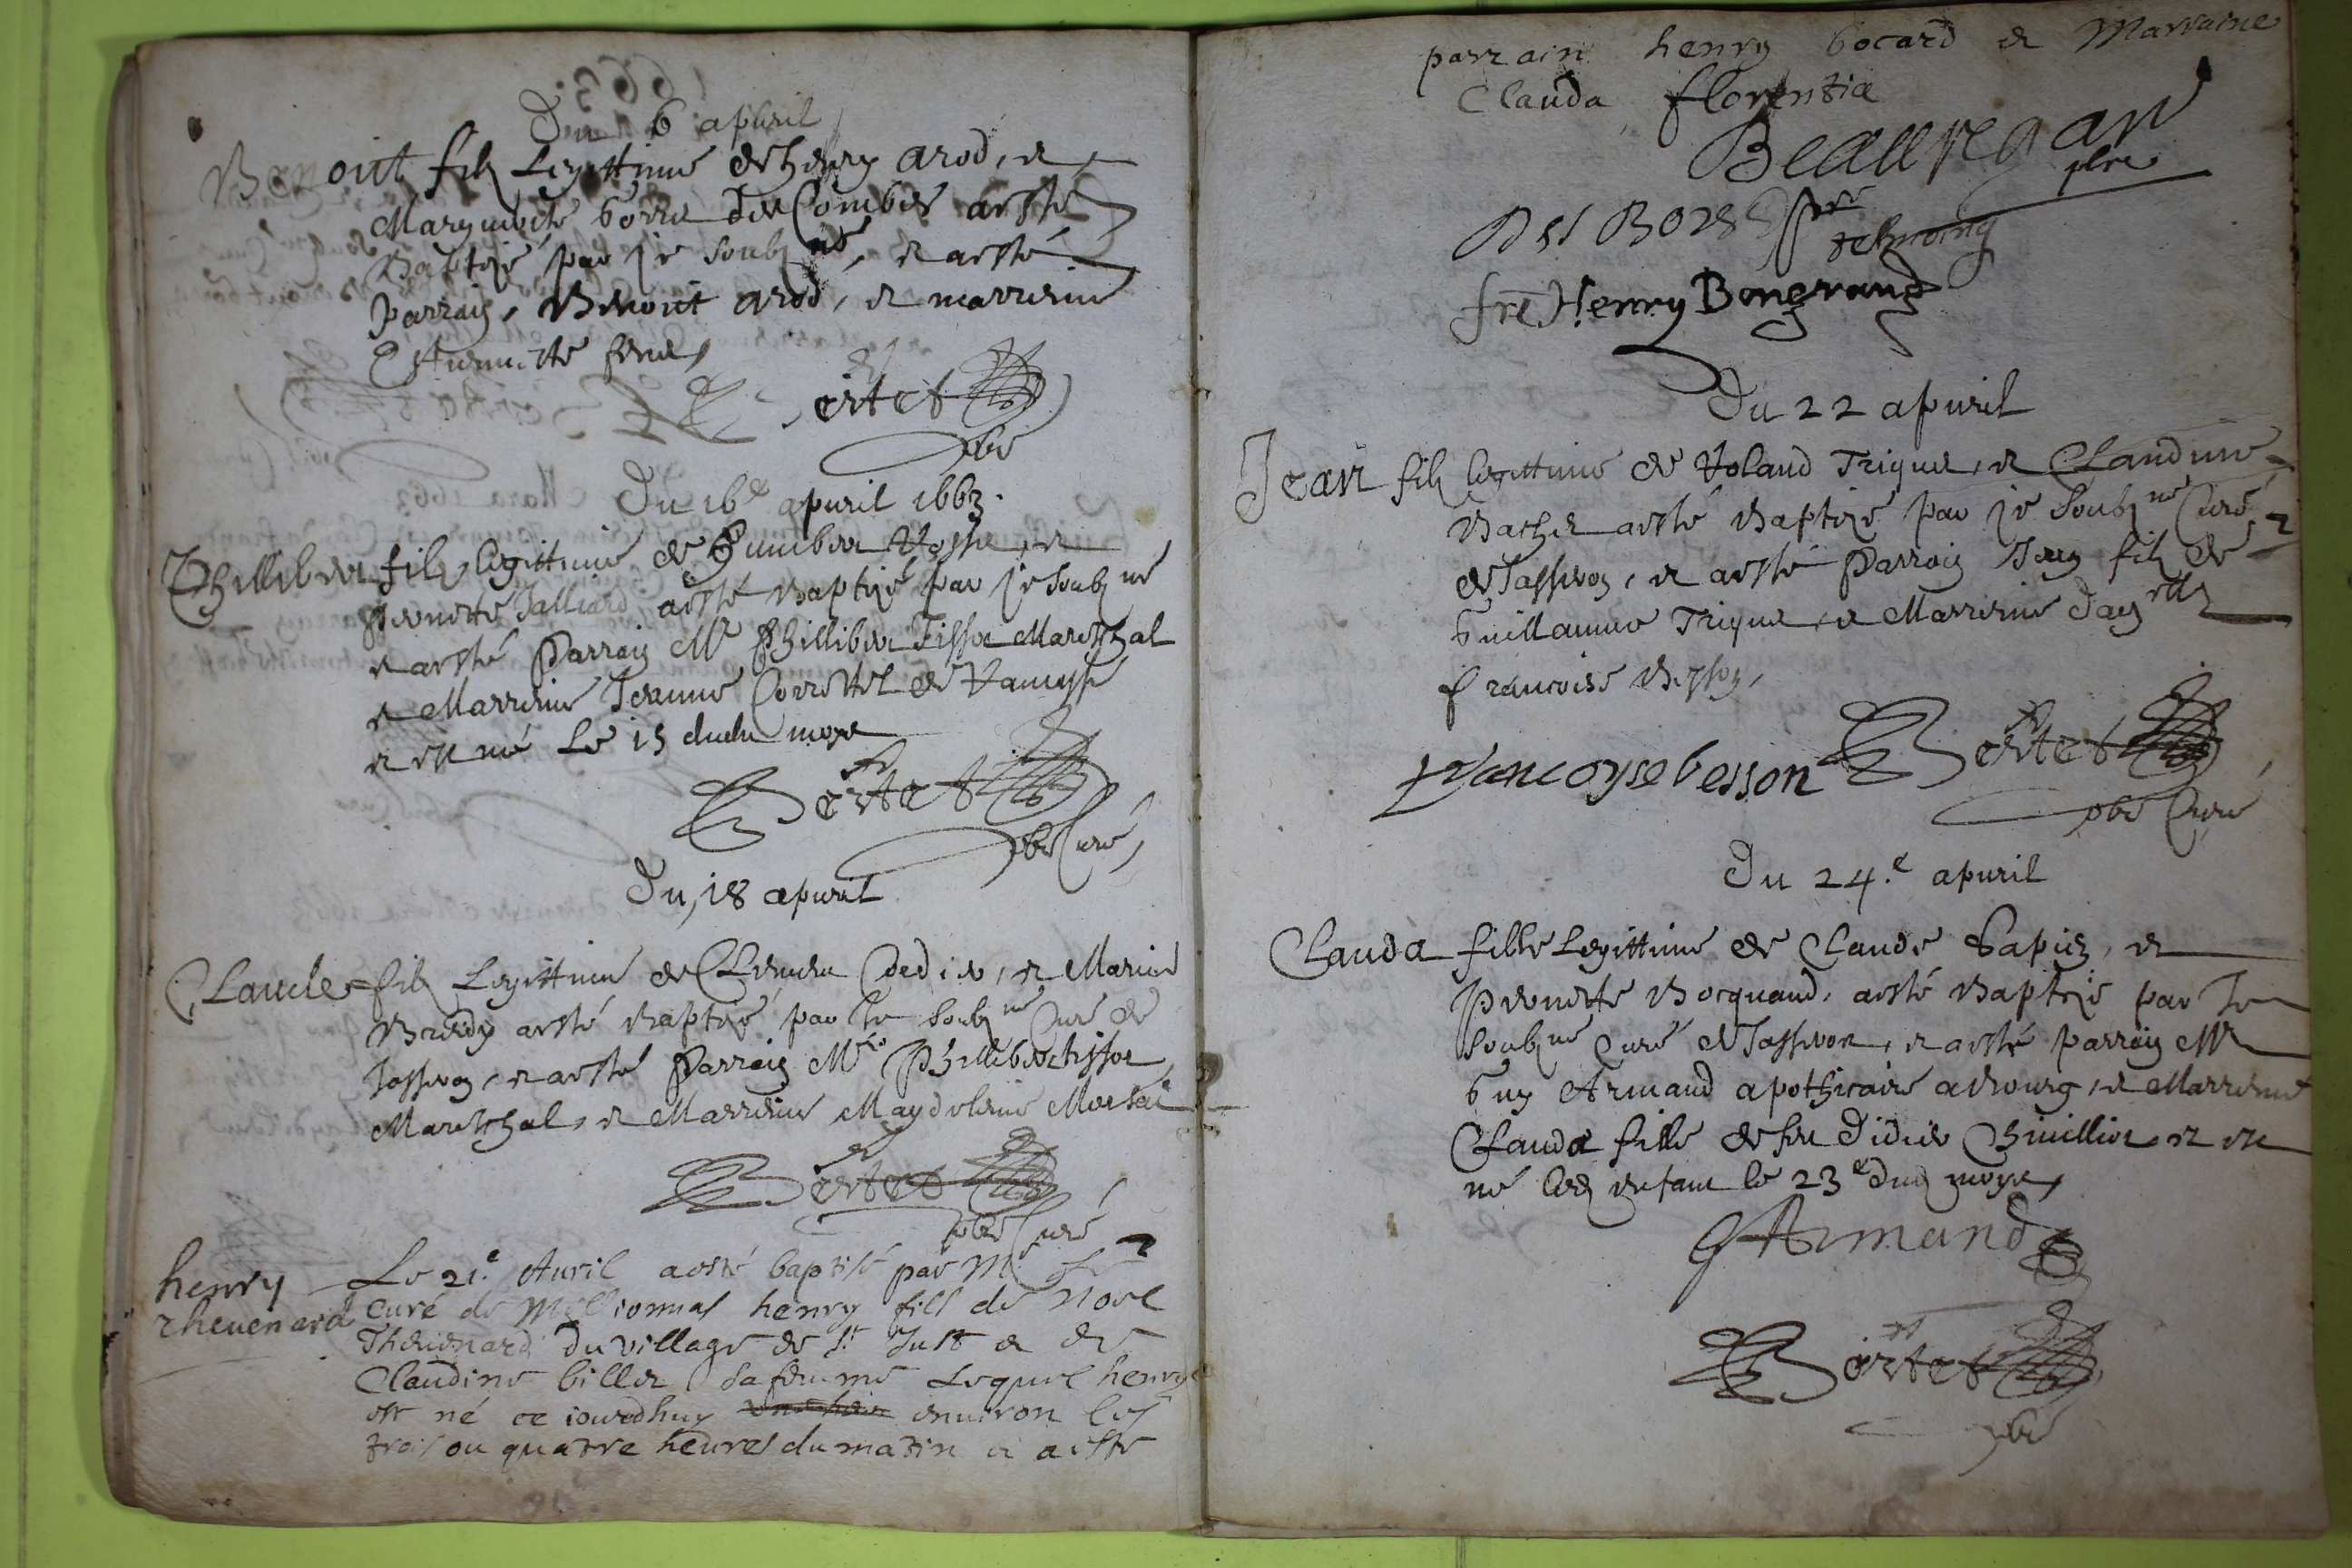 Du 6 apuril
Benoit filz Legittime de henry arod, et
Marguerite des Combes aesté
Baptizé par je soubz né, et aesté
Parrain, Benoit arod, et marreine
ertet
pbr
Du 16e apuril 1663.
Phillibert filz legittime de et
aesté baptizé par je soubz né
et aesté Parrain Mr Phillibert Tissot Mareschal
et Marreine Jeanne de
et est né le 15 dudit moys
Bertet
pbr Curé
Du, 18 apuril
Claude filz Legittime de et Marie
aesté baptizé par Je soubz né Curé de
et aesté Parrain Mre Phillibert tissot
Mareschal, et Marreine Magdeleine
Bertet
pbr Curé
henry
thevenard
Le 21.e Auril aesté baptisé par Mre
curé de Meillonnas henry fils de Noel
Thevenard du village de St Just et de
Claudine billet sa femme Lequel henry
est né ce iourdhuy enuiron les
trois ou quatre heures du matin et a esté
parrain henry bocard et Marraine
Clauda florentia
Beauregard
pbre
Des Bois pbre
tesmoing
fre Henry Bongrand
Du 22 apuril
Jean filz legittime de et Claudine
aesté Baptizé par je soubz né Curé
et aesté Parrain Jean filz de
Guillaume et Marreine
francoise Besson,
francoyse besson Bertet
pbr Curé
Du 24.e apuril
Clauda fille Legittime de Claude et
Pernette Bocquand, aesté Baptizé par Je
soubz né Curé et aesté parrain Mr
Guy Armand apothicaire a Bourg, et Marreine
Clauda fille de feu Didier et est
né led enfant le 23e dud moys,
G Armand
Bertet
pbr